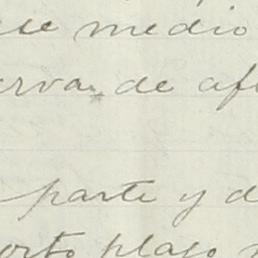 ese medio
erva de af
parte y d
orto plaso